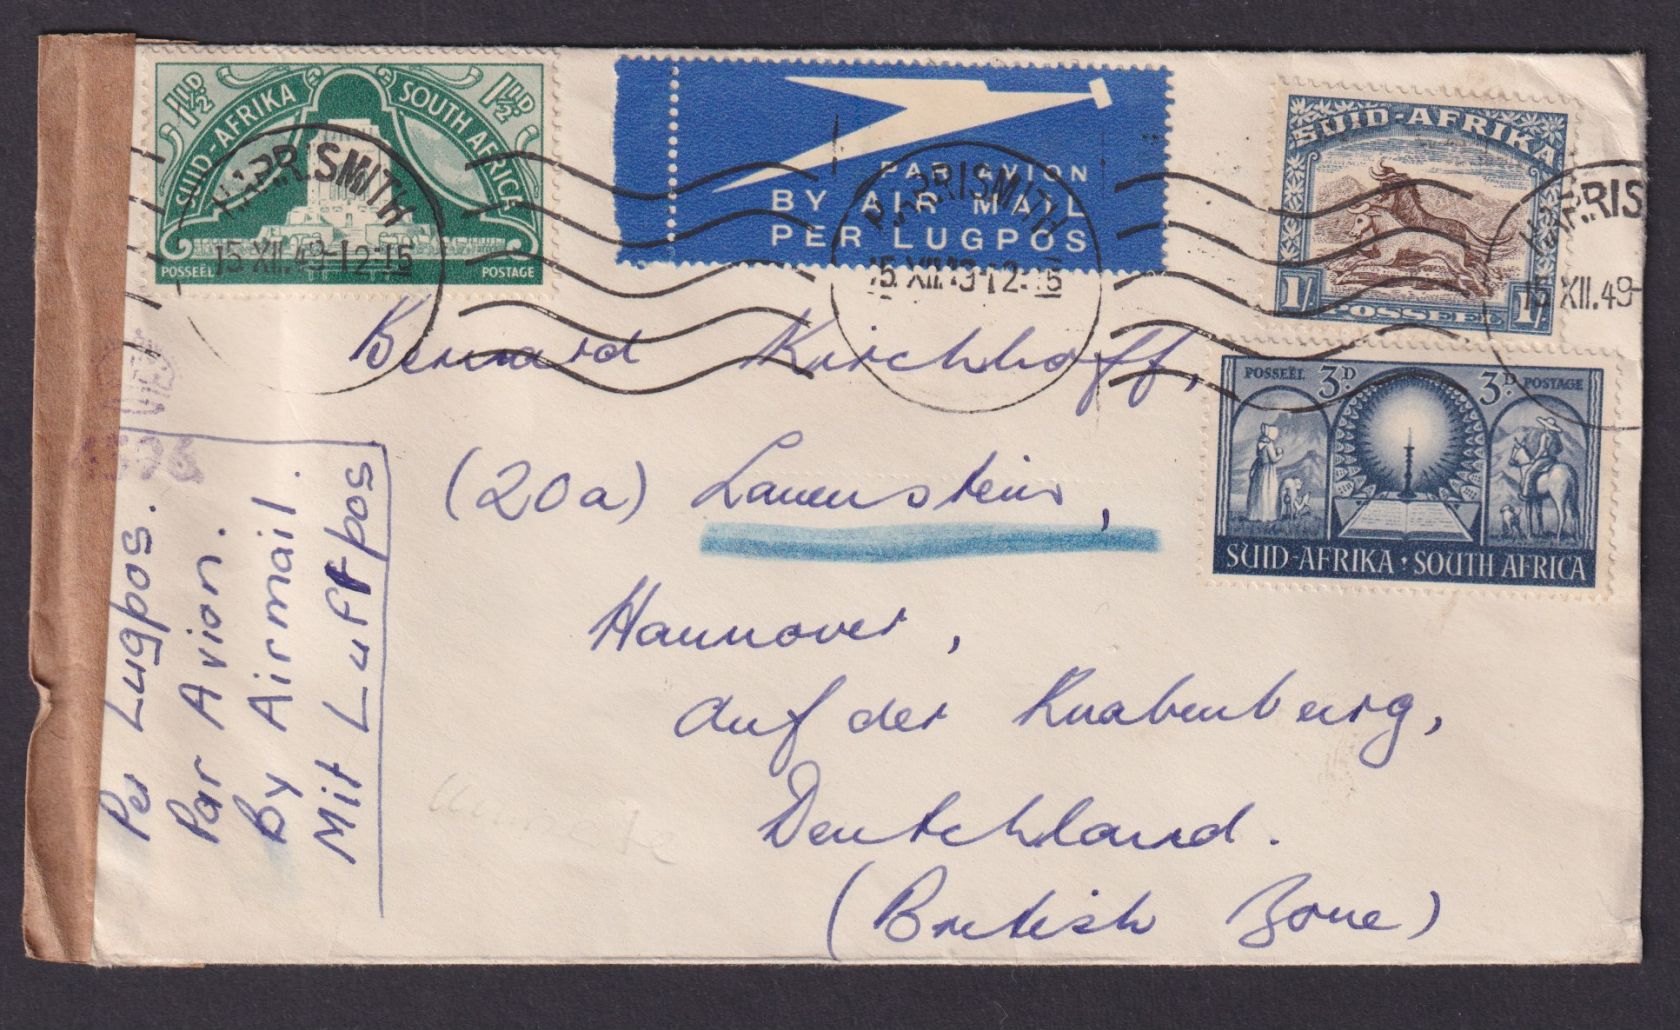 1½D 1½D
SUID-AFRIKA SOUTH AFRICA
POSSEËL POSTAGE
HARRISMITH
15 XII.49-12-15
PAR AVION
BY AIR MAIL
PER LUGPOS
HARRISMITH
15 XII.49-12-15
SUID-AFRIKA
1/- POSSEËL 1/-
HARRIS
15 XII.49-
POSSEËL 3D. 3D. POSTAGE
SUID-AFRIKA · SOUTH AFRICA
Bernard Kirchhoff,
(20a) Lauenstein,
Hannover,
auf der Knabenburg,
Deutchland.
(British Zone)
Per Lugpos.
Par Avion.
By Airmail.
Mit Luftpos